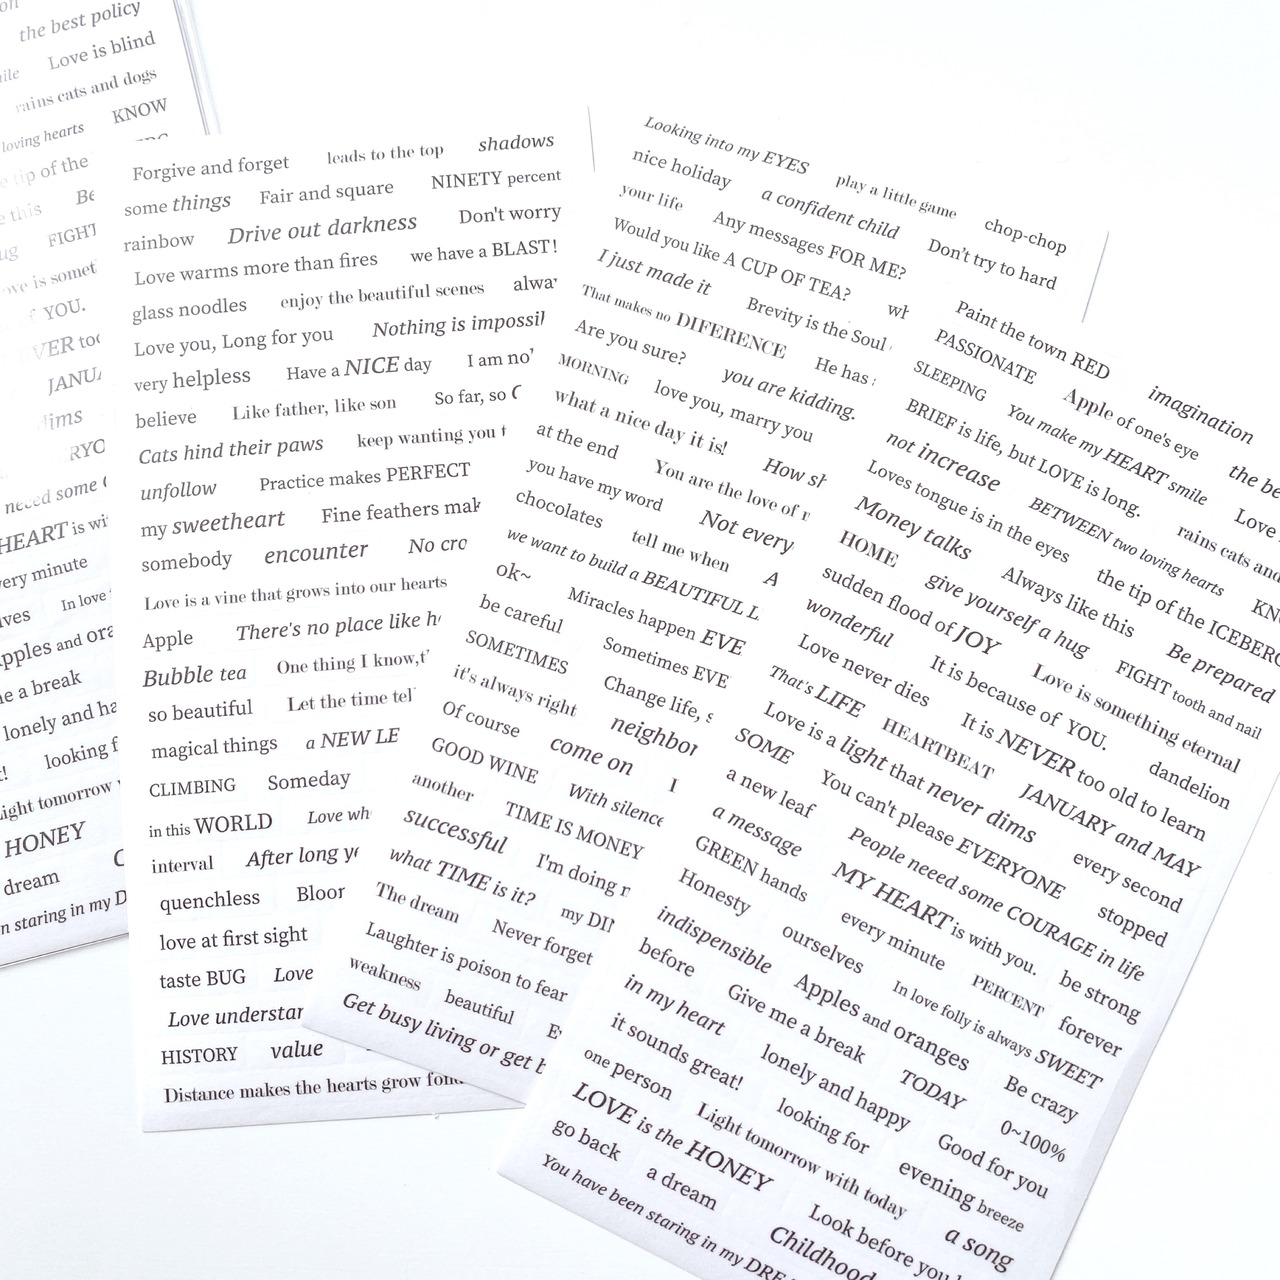 the best policy
Love is blind
rains cats and dogs
loving hearts KNOW
tip of the
this
FIGHT
YOU.
too
dims
neeed some
HEART is
every minute
In love
apples and
me a break
lonely and
looking
Light tomorrow
HONEY
dream
staring in my
Forgive and forget leads to the top shadows
some things Fair and square NINETY percent
rainbow Drive out darkness Don't worry
Love warms more than fires we have a BLAST!
glass noodles enjoy the beautiful scenes
Love you, Long for you Nothing is
very helpless Have a NICE day I am
believe Like father, like son So far, so
Cats hind their paws keep wanting you
unfollow Practice makes PERFECT
my sweetheart Fine feathers
somebody encounter No
Love is a vine that grows into our hearts
Apple There's no place like
Bubble tea One thing I know,
so beautiful Let the time
magical things a NEW
CLIMBING Someday
in this WORLD Love
interval After long
quenchless
love at first sight
taste BUG Love
Love
HISTORY value
Distance makes the hearts grow
Looking into my EYES play a little game chop-chop
nice holiday a confident child Don't try to hard
your life Any messages FOR ME?
Would you like A CUP OF TEA?
I just made it Brevity is the Soul
That makes no DIFERENCE He has
Are you sure? you are kidding.
MORNING love you, marry you
what a nice day it is! How
at the end You are the love of
you have my word Not every
chocolates tell me when A
we want to build a BEAUTIFUL
ok~ Miracles happen
be careful Sometimes
SOMETIMES Change life,
it's always right neighbor
Of course come on I
GOOD WINE With silence
another TIME IS MONEY
successful I'm doing
what TIME is it? my
The dream Never forget
Laughter is poison to fear
weakness beautiful
Get busy living or get
Paint the town RED imagination
PASSIONATE Apple of one's eye the
SLEEPING You make my HEART smile Love
BRIEF is life, but LOVE is long. rains cats and
not increase BETWEEN two loving hearts
Loves tongue is in the eyes the tip of the ICEBERG
Money talks Always like this Be prepared
HOME give yourself a hug FIGHT tooth and nail
sudden flood of JOY Love is something eternal
wonderful It is because of YOU. dandelion
Love never dies It is NEVER too old to learn
That's LIFE HEARTBEAT JANUARY and MAY
Love is a light that never dims every second
SOME You can't please EVERYONE stopped
a new leaf People neeed some COURAGE in life
a message MY HEART is with you. be strong
GREEN hands every minute PERCENT forever
Honesty ourselves In love folly is always SWEET
indispensible Apples and oranges Be crazy
before Give me a break TODAY 0~100%
in my heart lonely and happy Good for you
it sounds great! looking for evening breeze
one person Light tomorrow with today a song
LOVE is the HONEY Look before you
go back a dream Childhood
You have been staring in my